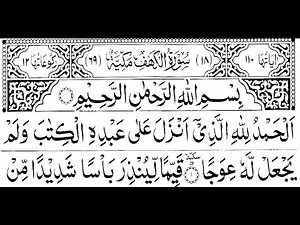 اٰيَاتُهَا ١١٠ (١٨) سُوْرَةُ الْكَهْفِ مَكِّيَّةٌ (٦٩) رُكُوْعَاتُهَا ١٢
بِسْمِ اللّٰهِ الرَّحْمٰنِ الرَّحِيْمِ
اَلْحَمْدُ لِلّٰهِ الَّذِيْٓ اَنْزَلَ عَلٰى عَبْدِهِ الْكِتٰبَ وَلَمْ
يَجْعَلْ لَّهٗ عِوَجًا ۜ قَيِّمًا لِّيُنْذِرَ بَاْسًا شَدِيْدًا مِّنْ